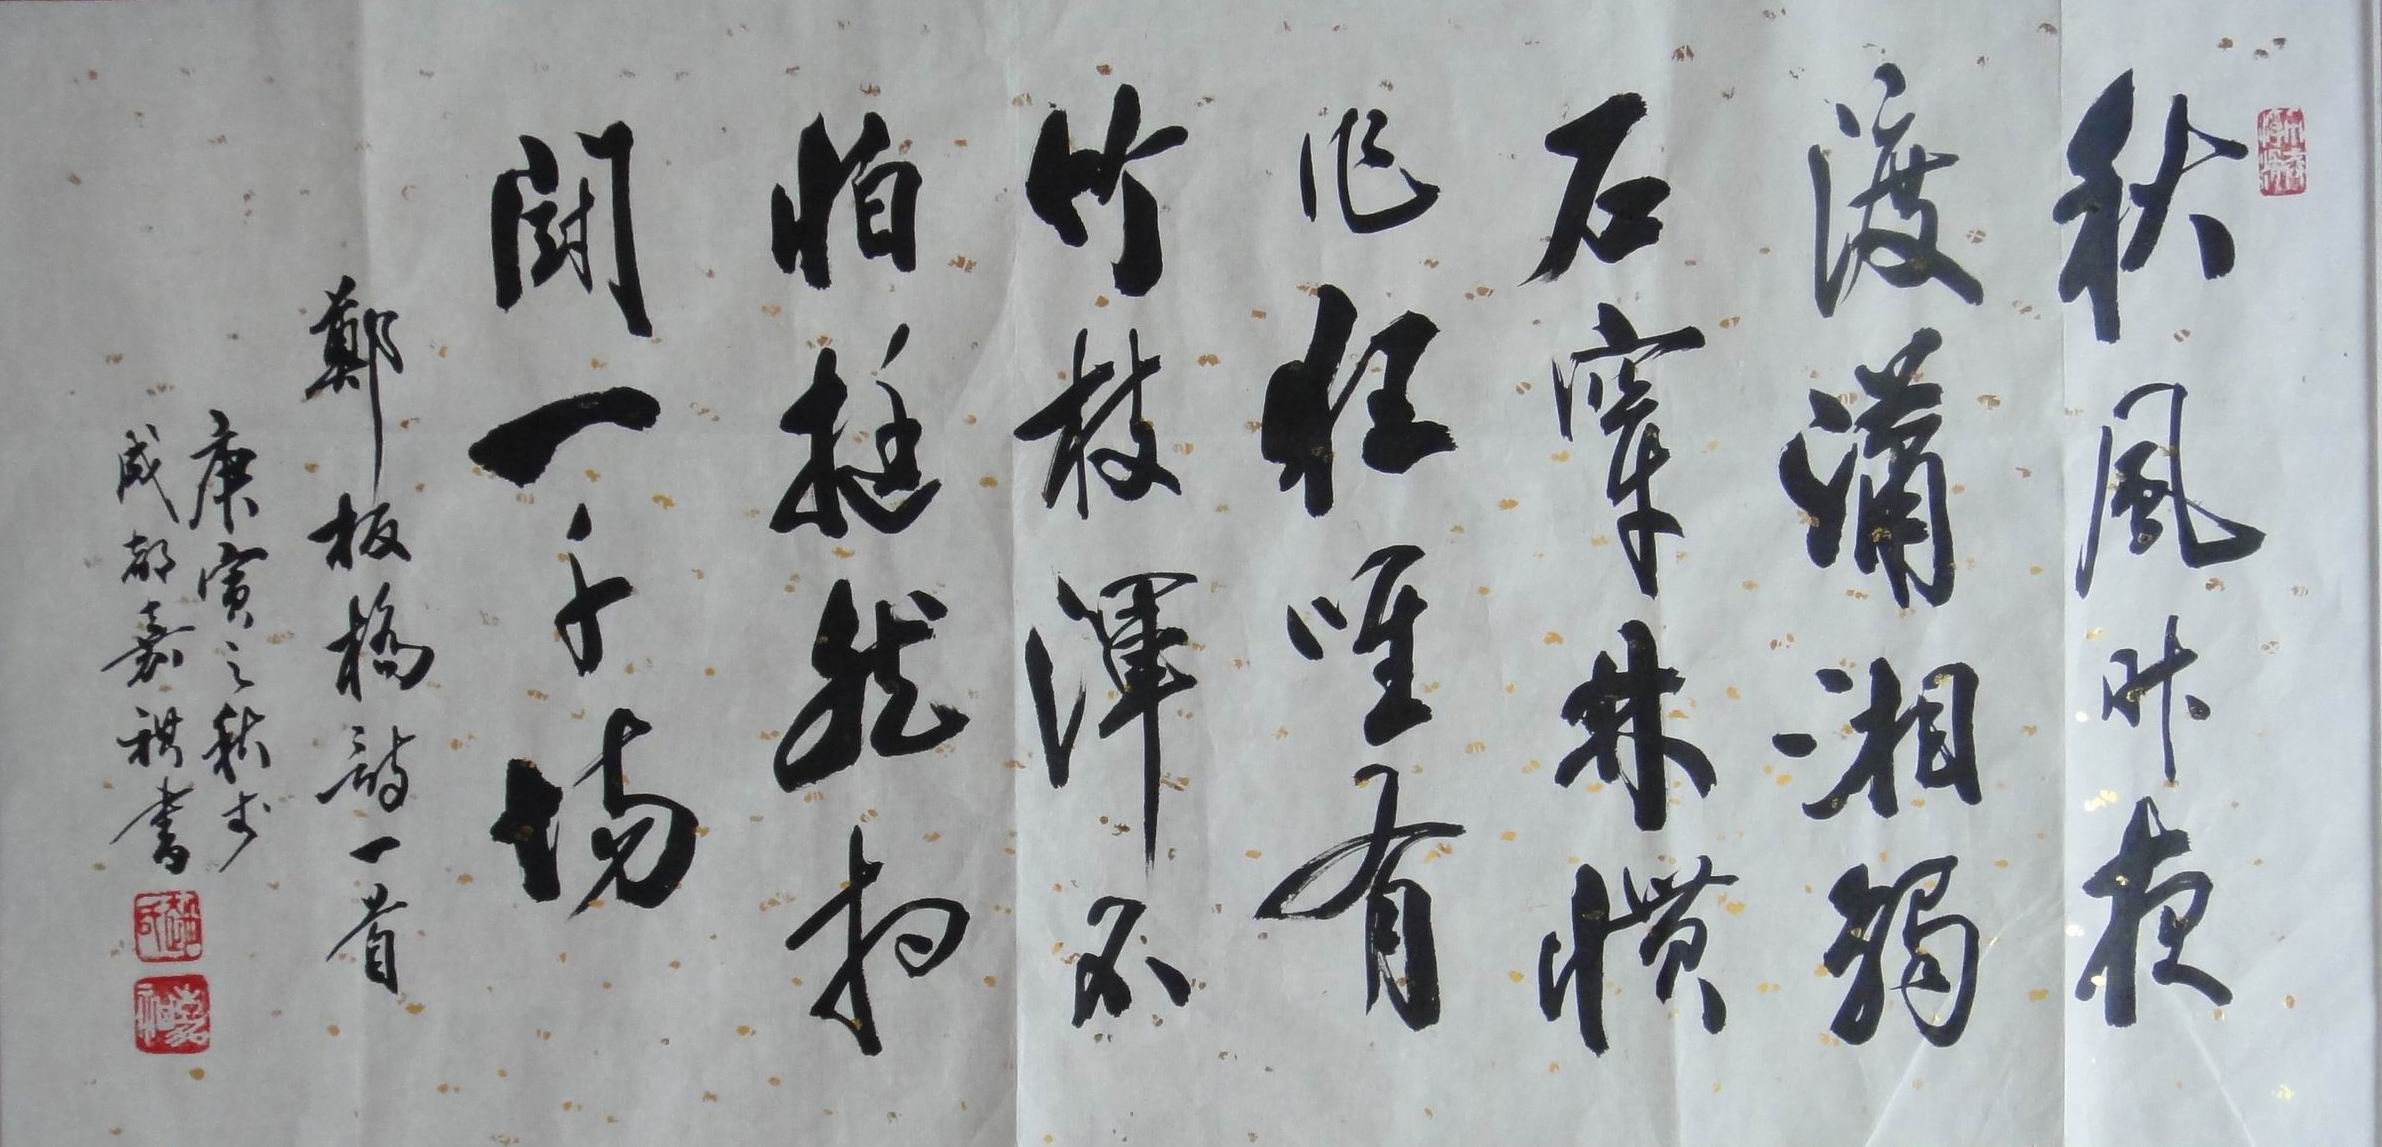 秋風昨夜
渡瀟湘觸
石穿林慣
作狂唯有
竹枝渾不
怕挺然相
鬪一千場
鄭板橋詩一首
庚寅之秋于
成都嘉祺書